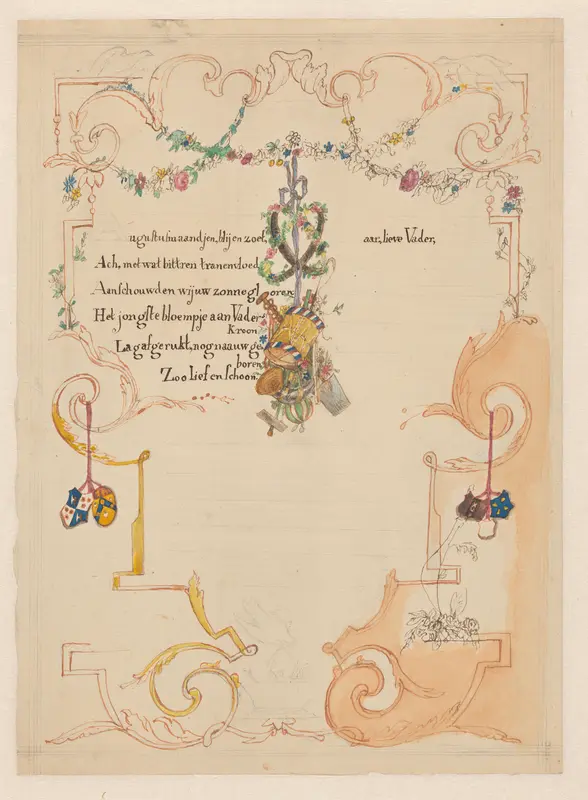 ugustusmaandjen, blij en zoet,
aar, lieve Vader,
Ach, met wat bittren tranenvloed
Aanschouwden wij uw zonnegloren
Het jongste bloempje aan Vader-
kroon.
Lag afgerukt, nog naauw ge
boren,
Zoo lief en schoon.